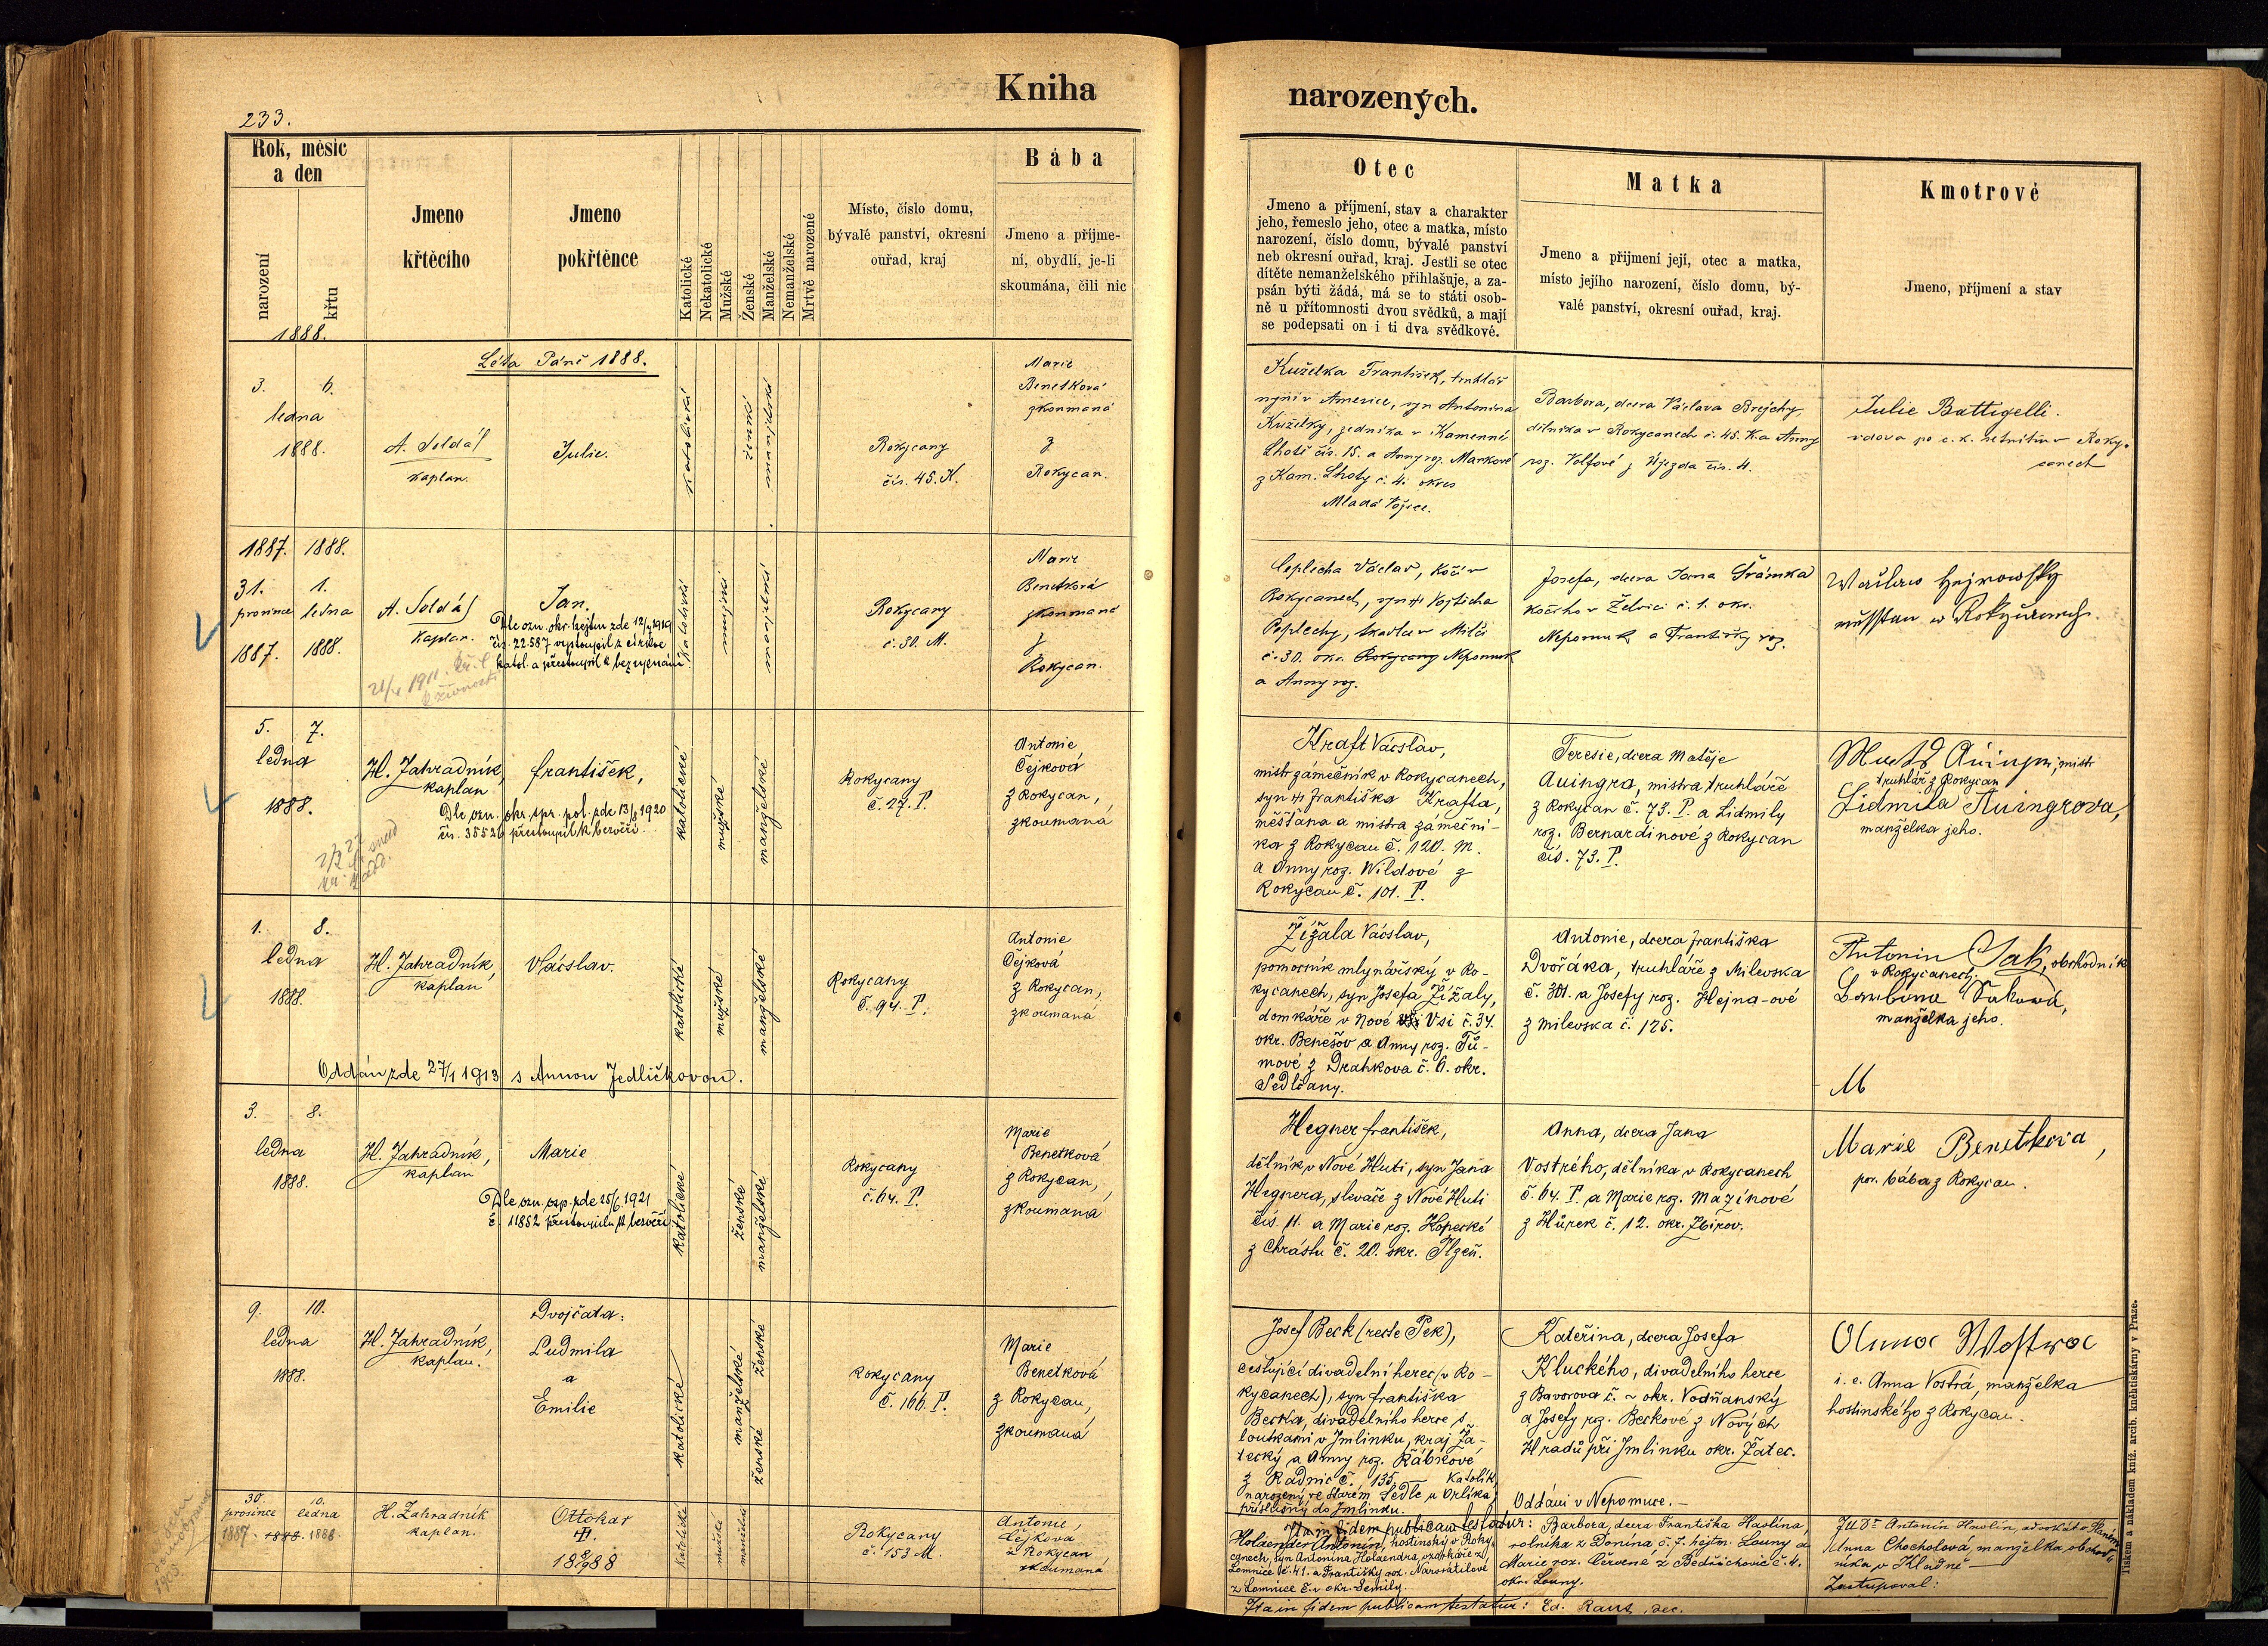 Kniha
narozených.
233.
Rok, měsíc
a den
narození
křtu
1888.
Jmeno
křtěcího
Jmeno
pokřtěnce
Katolické
Nekatolické
Mužské
Ženské
Manželské
Nemanželské
Mrtvě narozené
Místo, číslo domu,
bývalé panství, okresní
ouřad, kraj
Bába
Jmeno a příjme-
ní, obydlí, je-li
skoumána, čili nic
Otec
Jmeno a příjmení, stav a charakter
jeho, řemeslo jeho, otec a matka, místo
narození, číslo domu, bývalé panství
neb okresní ouřad, kraj. Jestli se otec
dítěte nemanželského přihlašuje, a za-
psán býti žádá, má se to státi osob-
ně u přítomnosti dvou svědků, a mají
se podepsati on i ti dva svědkové.
Matka
Jmeno a přijmení její, otec a matka,
místo jejího narození, číslo domu, bý-
valé panství, okresní ouřad, kraj.
Kmotrové
Jmeno, příjmení a stav
Léta Páně 1888.
3. 6.
ledna
1888.
A. Soldát
kaplan.
Julie.
katolická
ženská
manželská
Rokycany
čís. 45. K.
Marie
Benetková
zkoumaná
z
Rokycan.
Kuželka František, truhlář
nyní v Americe, syn Antonína
Kuželky, zedníka v Kamenné
Lhotě čís. 15. a Anny roz. Markové
z Kam. Lhoty č. 4. okres
Mladá Vožice.
Barbora, dcera Václava Brejchy,
dělníka v Rokycanech č. 45. K. a Anny
roz. Volfové z Újezda čís. 4.
Julie Battigelli.
vdova po c. k. v Roky-
canech
1887. 1888.
31. 1.
prosince ledna
1887. 1888.
A. Soldát
kaplan.
Jan.
Dle ozn. okr. hejtm. zde 12/ 1919
čís. 22.587 vystoupil z církve
katol. a přestoupil k bezvyznání
1911.
živnosti
katolické
mužské
manželské
Rokycany
č. 30. M.
Marie
Benetková
zkoumaná
z
Rokycan.
Ceplecha Václav, kočí v
Rokycanech, syn Vojtěcha
Ceplechy, tkadlce v Milči
č. 30. okr. Rokycany Nepomuk
a Anny roz.
Josefa, dcera Jana Šrámka
kočího v Želvici č. 1. okr.
Nepomuk a Františky roz.
5. 7.
ledna
1888.
H. Zahradník,
kaplan
František,
Dle ozn. okr. spr. pol. zde 13/8 1920
čís. 35526 přestoupil k bezvěří.
katolické
mužské
manželské
Rokycany
č. 27. P.
Antonie
Čejková
z Rokycan,
zkoumaná
Kraft Václav,
mistr zámečník v Rokycanech,
syn Františka Krafta,
měšťana a mistra zámeční-
ka z Rokycan č. 120. M.
a Anny roz. Wildové z
Rokycan č. 101. P.
Teresie, dcera Matěje
Auingra, mistra truhláře
z Rokycan č. 73. P. a Lidmily
roz. Bernardinové z Rokycan
čís. 73. P.
mistr
truhlář z Rokycan
Lidmila Auingrova,
manželka jeho.
1. 8.
ledna
1888.
H. Zahradník,
kaplan
Václav.
katolické
mužské
manželské
Rokycany
č. 94. P.
Antonie
Čejková
z Rokycan,
zkoumaná
Oddán zde 27/1 1913 s Annou Jedličkovou.
Žížala Václav,
pomocník mlynářský v Ro-
kycanech, syn Josefa Žížaly,
domkáře v Nové Vsi č. 34.
okr. Benešov a Anny roz. Tů-
mové z Drahkova č. 6. okr.
Sedlčany.
Antonie, dcera Františka
Dvořáka, truhláře z Milevska
č. 301. a Josefy roz. Hejna-ové
z Milevska č. 175.
Antonín Jakš, obchodník
v Rokycanech.
manželka jeho.
3. 8.
ledna
1888.
H. Zahradník,
kaplan
Marie
Dle ozn. osp. zde 25/6. 1921
č. 11852 přestoupila k bezvěří
katolické
ženské
manželské
Rokycany
č. 64. P.
Marie
Benetková
z Rokycan,
zkoumaná
Hegner František,
dělník v Nové Huti, syn Jana
Hegnera, slevače z Nové Huti
čís. 11. a Marie roz. Kopecké
z Chrástu č. 20. okr. Plzeň.
Anna, dcera Jana
Vostrého, dělníka v Rokycanech
č. 64. P. a Marie roz. Mazínové
z Hůrek č. 12. okr. Zbirov.
Marie Benetkova,
por. bába z Rokycan.
9. 10.
ledna
1888.
H. Zahradník,
kaplan.
Dvojčata:
Ludmila
a
Emilie
katolické
manželské
ženské
ženské
Rokycany
č. 166. P.
Marie
Benetková
z Rokycan,
zkoumaná
Josef Beck (recte Pek),
cestující divadelní herec (v Ro-
kycanech), syn Františka
Becka, divadelního herce s
loutkami v Jmlinku, kraj Ža-
tecký a Anny roz. Rábíkové
z Radnic č. 135. Katolík
narozený ve Starém Sedle u Orlíka,
příslušný do Jmlinku.
Kateřina, dcera Josefa
Kluckého, divadelního herce
z Bavorova č. ~ okr. Vodňanský
a Josefy roz. Beckové z Nových
Hradů při Jmlinku okr. Žatec.
Oddáni v Nepomuce.-
Anna Wostra
i. e. Anna Vostrá, manželka
hostinského z Rokycan.
30. 10.
prosince ledna
1887. 1888. 1888.
H. Zahradník
kaplan.
Ottokar
18 8/9 88
katolické
mužské
manželské
Rokycany
č. 153 M.
Antonie,
Čejkova
z Rokycan
zkoumaná
Ita in fidem publicam testatur:
Holaender Antonín, hostinský v Roky-
canech, syn Antonína Holaendra, uzenkáře z
Lomnice č. 41. a Františky roz. Navrátilové
z Lomnice č. v okr. Semily.
Barbora, dcera Františka Havlína,
rolníka z Donína č. 7. hejtm. Louny a
Marie roz. Červené z Bedřichovic č. 4.
okr. Louny.
JUDr. Antonín Havlín, advokát v
Anna Chocholová, manželka obchod-
níka v Kladně
Zastupoval:
Ita in fidem publicam testatur: Ed. Raus, dec.
Tiskem a nákladem kníž. arcib. knihtiskárny v Praze.